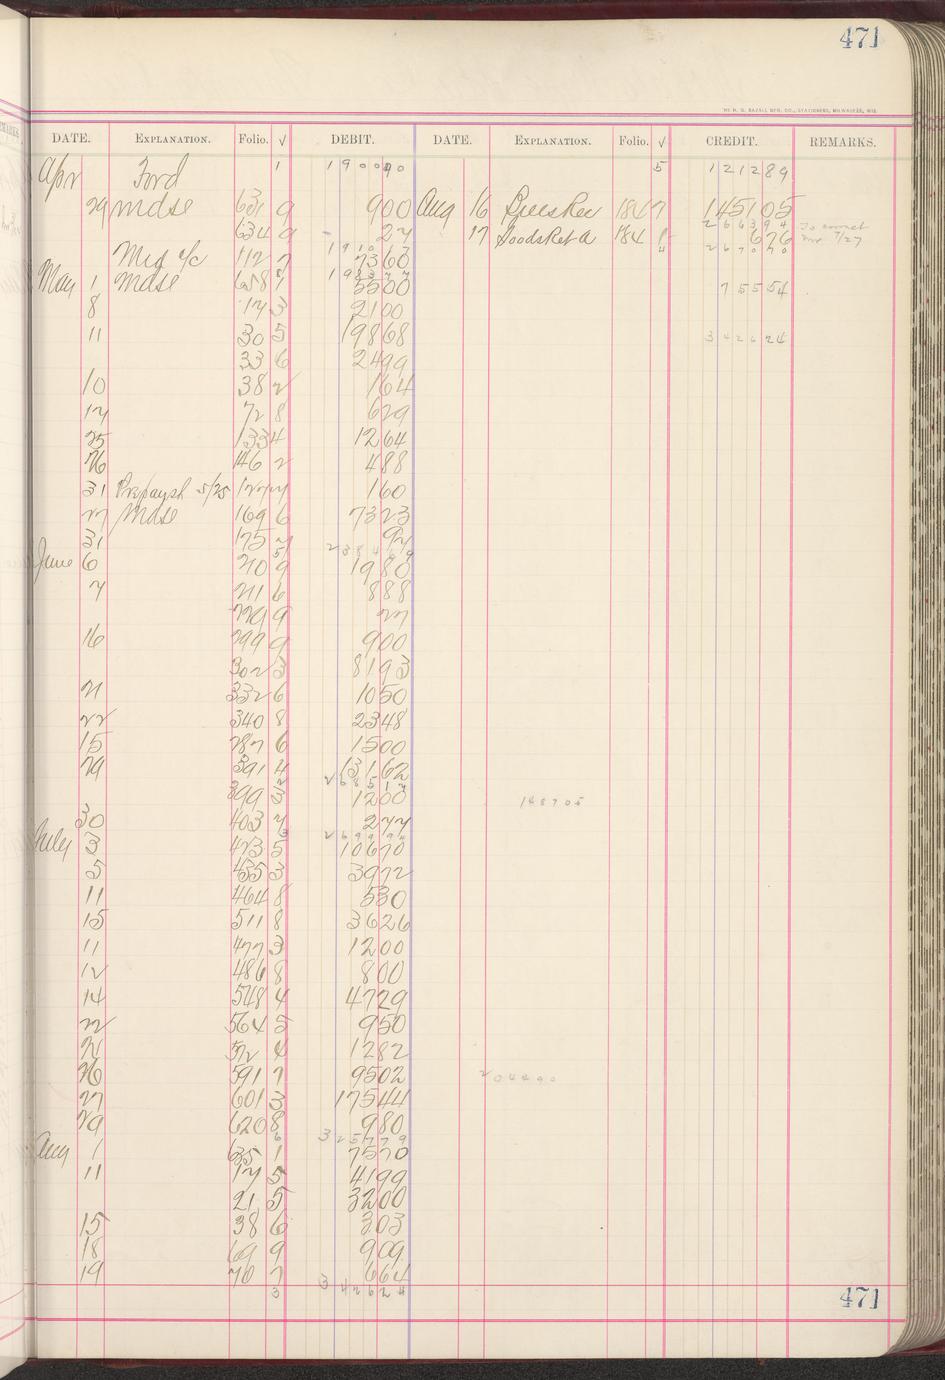 471
DATE. EXPLANATION. Folio. √ DEBIT. DATE. EXPLANATION. Folio. √ CREDIT. REMARKS.
Apr Ford 1 190090 5 121289
29 mdse 631 9 900 Aug 16 184 7 145105
634 9 27 17 Goods Ret a 184 1 676 To correct
266394
1910 7 4 267070
112 7 7360
May 1 mdse 658 1 5500 75554
8 17 3 2100
11 30 5 19868 342624
33 6 2499
10 38 2 164
12 72 8 629
25 133 4 1264
26 146 2 488
31 5/25 127 160
27 Mdse 169 6 7323
31 175 92
June 6 210 9 1980
7 211 6 888
229 9 27
16 299 9 900
302 3 8193
21 332 6 1050
22 340 8 2348
15 287 6 1500
29 391 4 13162
399 3 1200 148705
30 403 277
July 3 423 5 10670
5 455 3 3972
11 464 8 530
15 511 8 3626
11 477 3 1200
12 486 8 800
14 548 4 4729
22 564 5 950
4 1282
26 591 7 9502 204490
27 601 3 17544
29 620 8 980
6 325779
Aug 1 635 1 7570
11 17 5 4199
21 5 3200
15 38 6 303
18 69 9 909
19 70 7 664
3 342624
471